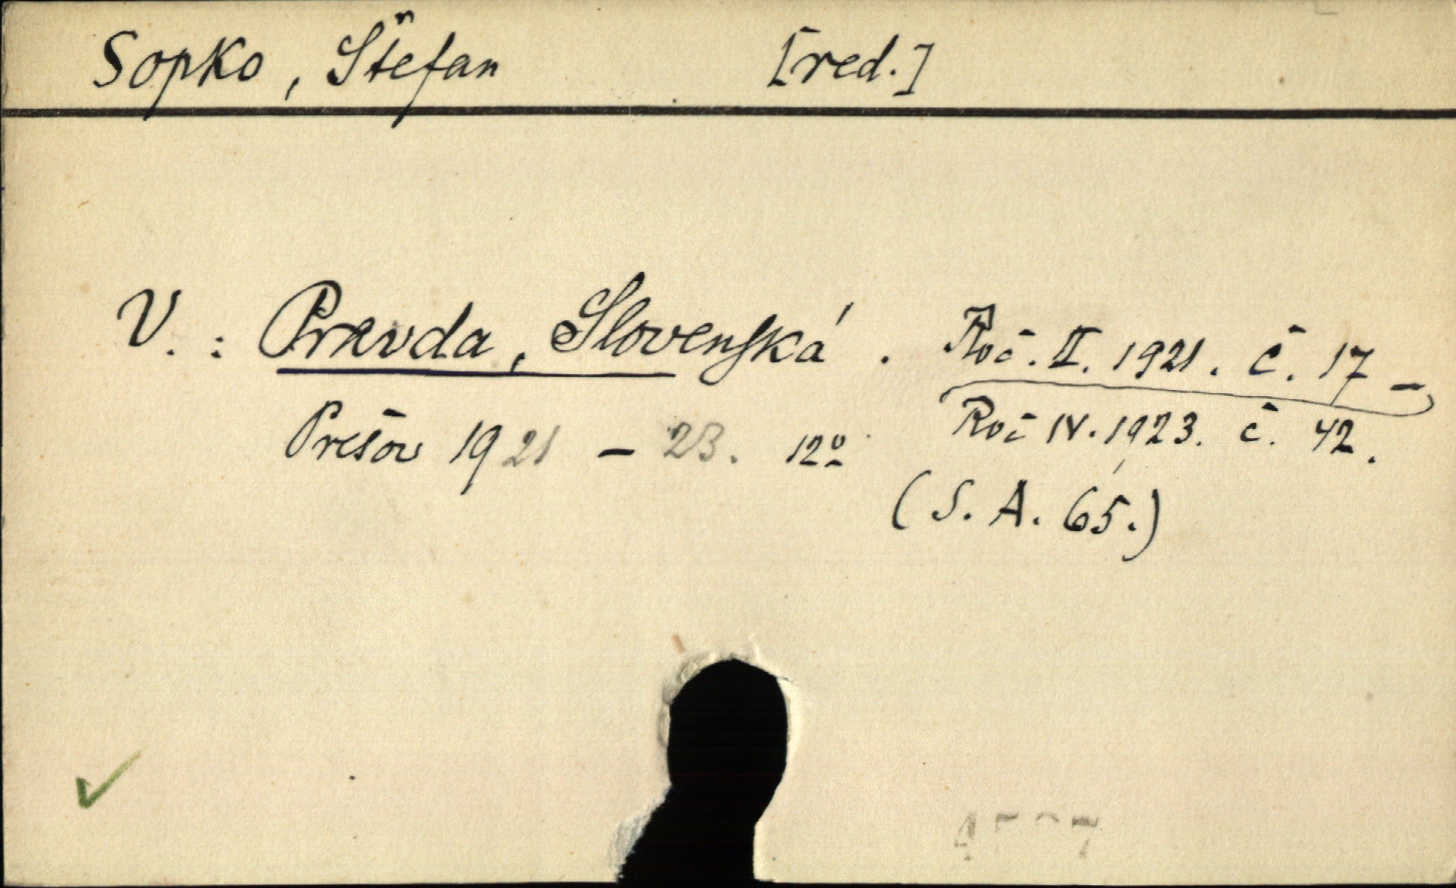 Sopko, Štefan [red.]
V. : Pravda, Slovenská. Roč. II. 1921. č. 17 –
Roč IV. 1923. č. 42.
Prešov 1921 – 23. 12º
(S. A. 65.)